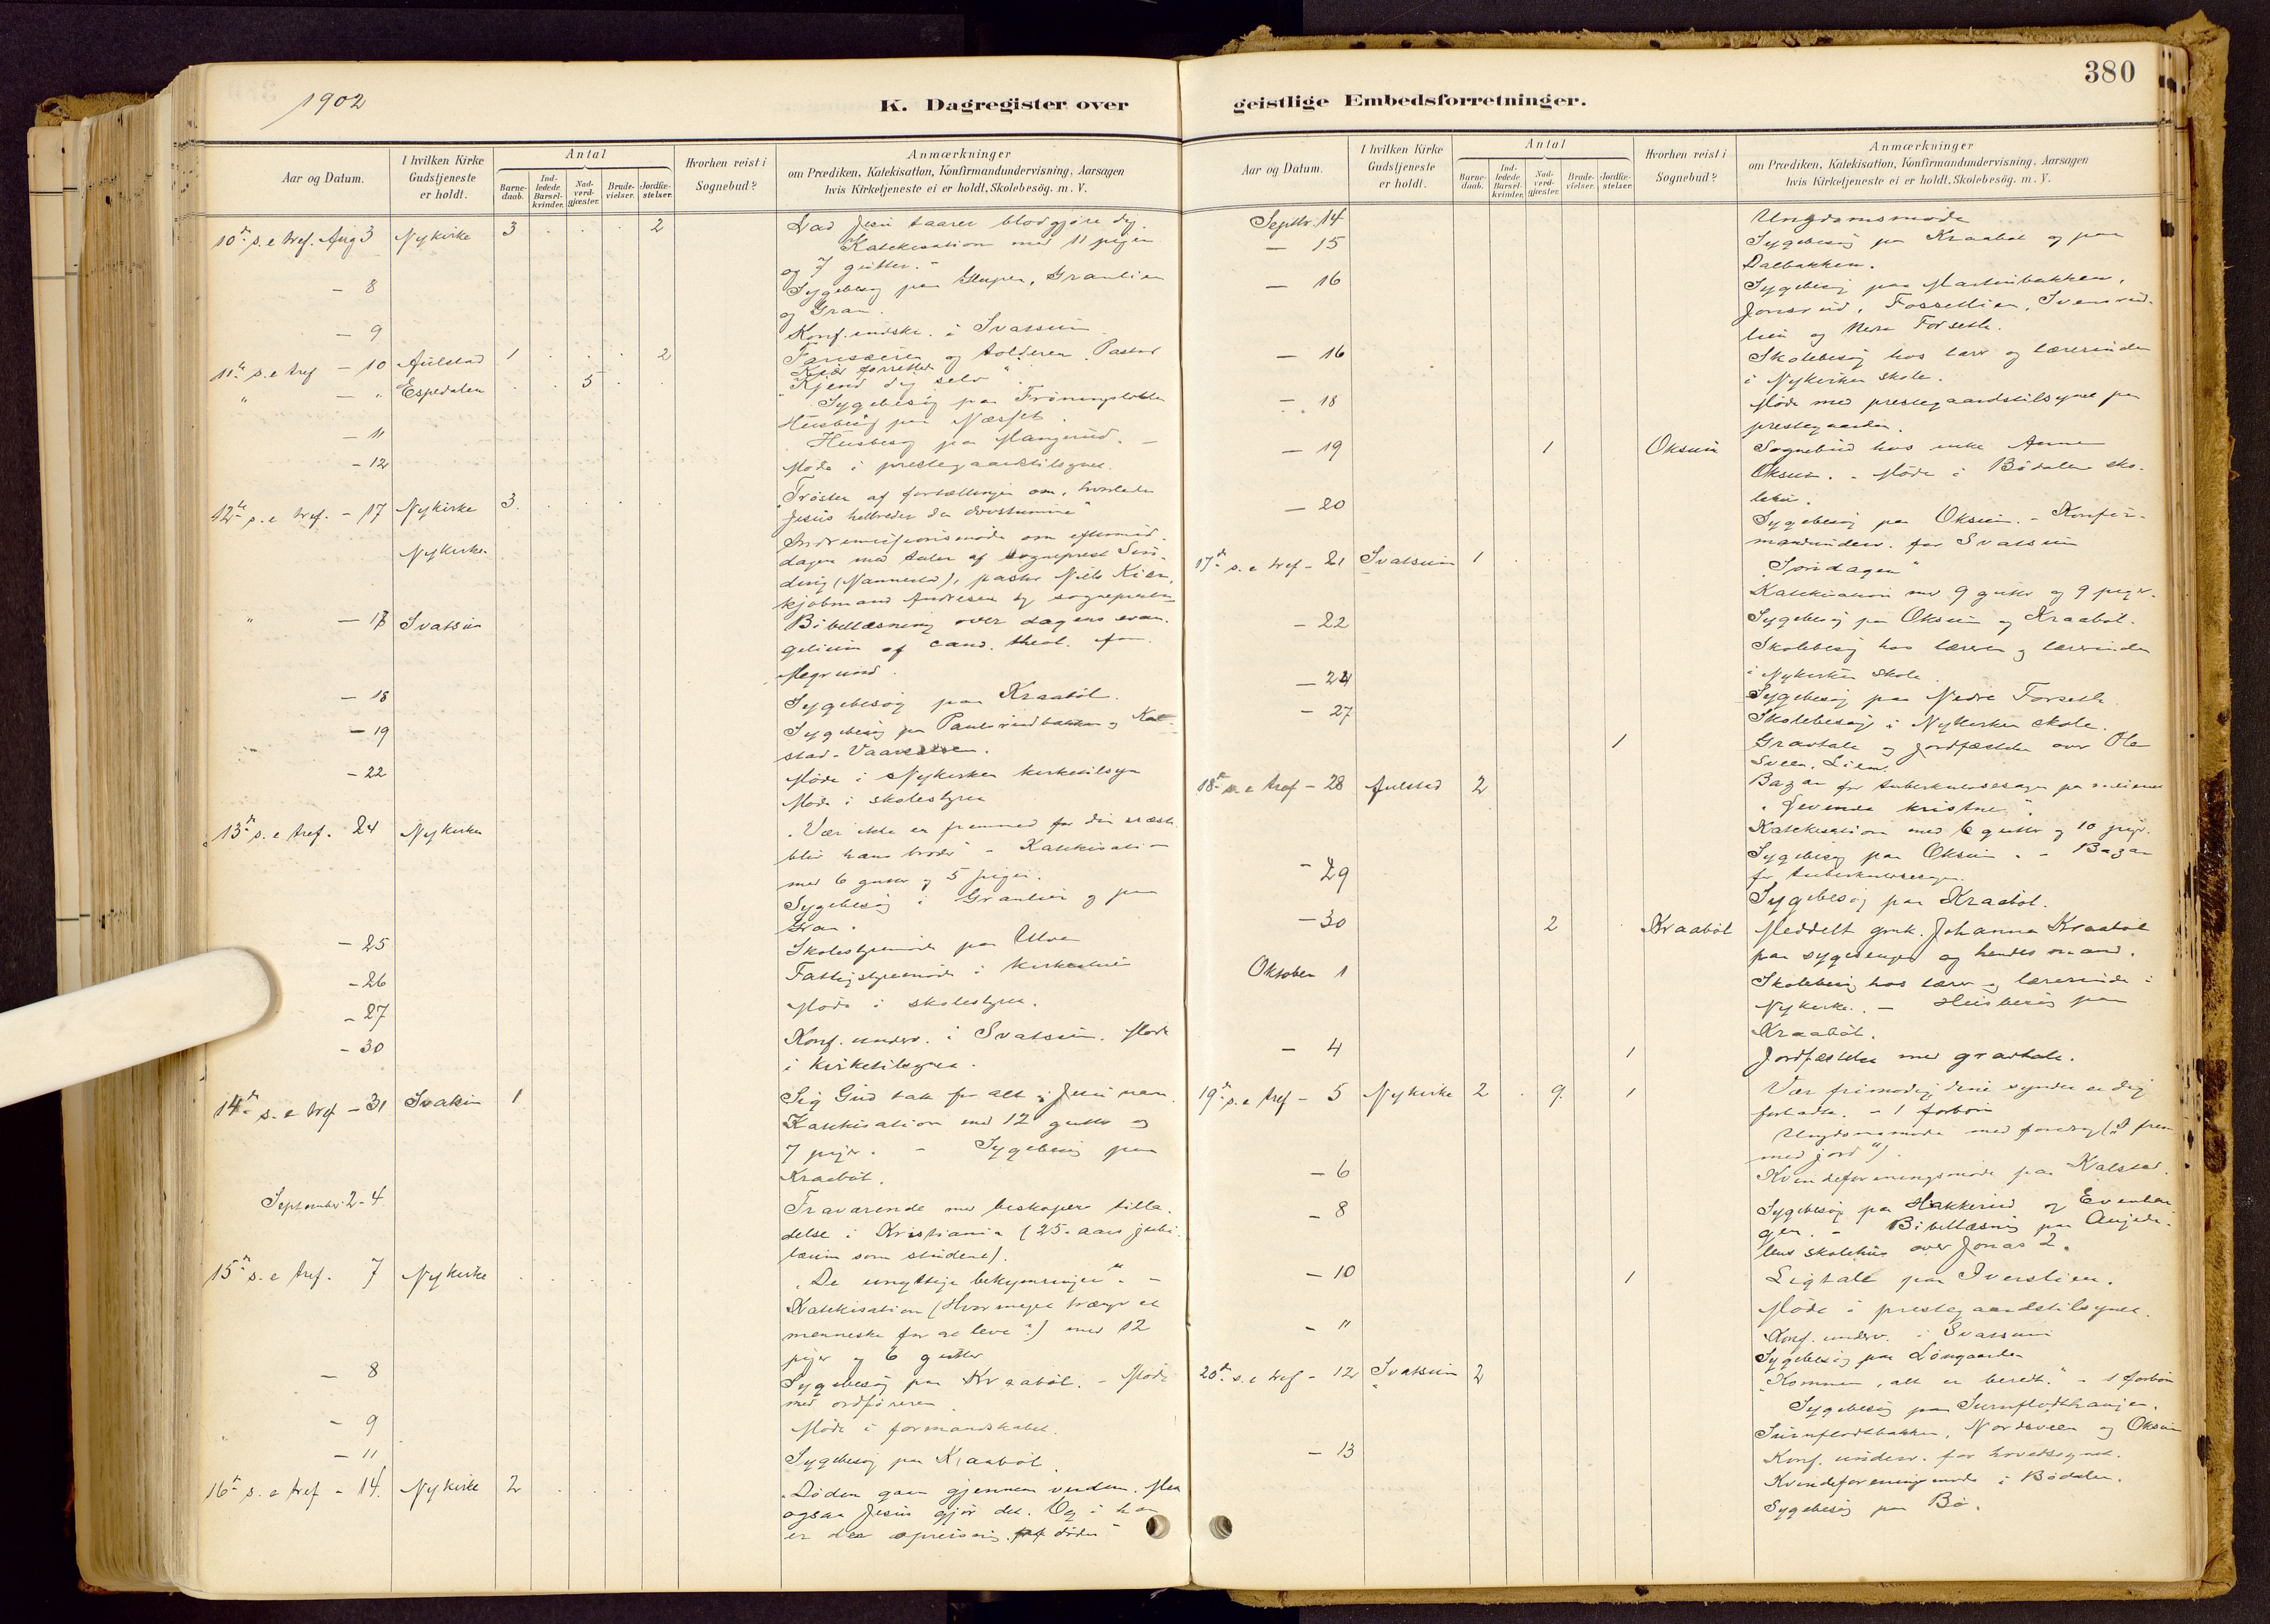 1902
K. Dagregister over
Aar og Datum.
I hvilken Kirke Gudstjeneste er holdt.
Antal
Barne-daab.
Ind-ledede Barsel-kvinder.
Nad-verd-gjæster.
Brude-vielser.
Jordfæ-stelser.
Hvorhen reist i Sognebud?
Anmærkninger
om Prædiken, Katekisation, Konfirmandundervisning, Aarsagen
hvis Kirketjeneste ei er holdt, Skolebesøg. m. V.
10de s. e tref. Aug 3 Nykirke 3 . . . 2 Lad Jesu taarer blødgjøre dig.
Katekisation med 11 piger
og 7 gutter.
- 8 Sygebesøg paa Granlien
og Gran.
- 9 Konf. undv. i Svatsum
11te s. e tref - 10 Aulstad 1 . . . 2 Farisæeren og tolderen. Pastor
Kjær forretter
" - " Espedalen . . 5 . . "Kjend dig selv".
Sygebesøg paa
Husbesøg paa
- 11 Husbesøg paa
- 12 Møde i prestegaardstilsynet.
12te s. e tref. - 17 Nykirke 3 . . . . Trøsten af fortællingen om, hvorledes
Jesus helbreder den døvstumme"
Nykirke Indremissionsmøde om eftermid-
dagen med taler af sogneprest
pastor Niels Kjær,
kjøbmand Andresen og sognepresten
" - 17 Svatsum Bibellæsning over dagens evan-
gelium af cand. theol.
- 18 Sygebesøg paa Kraabøl.
- 19 Sygebesøg paa Paulsrudbakken og Kal-
stad.
- 22 Møde i Nykirken kirketilsyn
Møde i skolestyret
13de s. e tref. 24 Nykirken "Vær ikke en fremmed for din næste
bliv hans broder" - Katekisation
med 6 gutter og 5 piger.
Sygebesøg i Granlien og paa
Gran.
- 25 Skolestyremøde paa Ulven
- 26 Fattigstyremøde i kirkestuen
- 27 Møde i skolestyret.
- 30 Konf. underv. i Svatsum. Møde
i kirketilsynet.
14de s. e tref - 31 Svatsum 1 Sig Gud tak for alt i Jesu navn.
Katekisation med 12 gutter og
7 piger. - Sygebesøg paa
Kraabøl.
September 2-4 Fraværende med biskopens tilla-
delse i Kristiania (25-aars jubi-
læum som student).
15de s. e tref. 7 Nykirke . . . . "De unyttige bekymringer". -
Katekisation (Hvor meget trænger et
menneske for at leve?) med 12
piger og 6 gutter
- 8 Sygebesøg paa Kraabøl. - Møde
med ordføreren
- 9 Møde i formandskabet.
- 11 Sygebesøg paa Kraabøl
16de s. e tref - 14. Nykirke 2 . . . "Døden gaar gjennem verden. Men
ogsaa Jesus gjør det. Og i ham
er der opreisning døden"
380
geistlige Embedsforretninger.
Aar og Datum.
I hvilken Kirke Gudstjeneste er holdt.
Antal
Barne-daab.
Ind-ledede Barsel-kvinder.
Nad-verd-gjæster.
Brude-vielser.
Jordfæ-stelser
Hvorhen reist i Sognebud?
Anmærkninger
om Prædiken, Katekisation, Konfirmandundervisning, Aarsagen
hvis Kirketjeneste ei er holdt, Skolebesøg. m. V.
Septbr. 14 Ungdomsmøde
- 15 Sygebesøg paa Kraabøl og paa
Dalbakken.
- 16 Sygebesøg paa Martinbakken,
Jonsrud, Fossetlien,
lien og Nedre Forseth.
- 16 Skolebesøg hos lærer og lærerinden
i Nykirken skole.
- 18 Møde med prestegaardstilsynet paa
prestegaarden.
- 19 1 Oksum Sognebud hos enke Anne
Oksum. - Møde i Bødalens sko-
lehus.
- 20 Sygebesøg paa Oksum. - Konfir-
mandunderv. for Svatsum
17de s. e tref - 21 Svatsum 1 "Søndagen"
Katekisation med 9 gutter og 9 piger.
- 22 Sygebesøg paa Oksum og Kraabøl.
Skolebesøg hos læreren og lærerinden
i Nykirken skole.
- 24 Sygebesøg paa Nedre Forseth.
- 27 Skolebesøg i Nykirken skole.
1 Gravtale og jordfæstelse over Ole
Sveen, Lien.
18de s. e tref - 28 Aulstad 2 Bazar for tuberkulosesagen paa
"Levende kristne".
Katekisation med 6 gutter og 10 piger.
- 29 Sygebesøg paa Oksum. - Bazar
for tuberkulosesagen.
Sygebesøg paa Kraabøl.
- 30 2 Kraabøl Meddelt gmk. Johanne Kraabøl
paa sygesengen og hendes mand.
Oktober 1 Skolebesøg hos lærer og lærerinde i
Nykirke. - Husbesøg paa
Kraabøl.
- 4 1 Jordfæstelse med gravtale.
19de s. e tref - 5 Nykirke 2 . 9 . 1 Vær frimodig dine synder er dig
forladte. - 1 forbøn
Ungdomsmøde med foredrag ("I fred
med jord").
- 6 Kvindeforeningsmøde paa Kalstad.
- 8 Sygebesøg paa Hakkerud og
Bibellæsning paa
lens skolehus over Jonas 2.
- 10 1 Ligtale paa Iverslien.
Møde i prestegaardstilsynet.
- 11 Konf. underv. i Svatsum
Sygebesøg paa Longaarden
20de s. e tref - 12 Svatsum 2 "Kommer, alt er beredt." - 1 forbøn
Sygebesøg paa
Nordsveen og Oksum
- 13 Konf. underv. for hovedsognet.
Kvindeforeningsmøde i Bødalen.
Sygebesøg paa Bø.